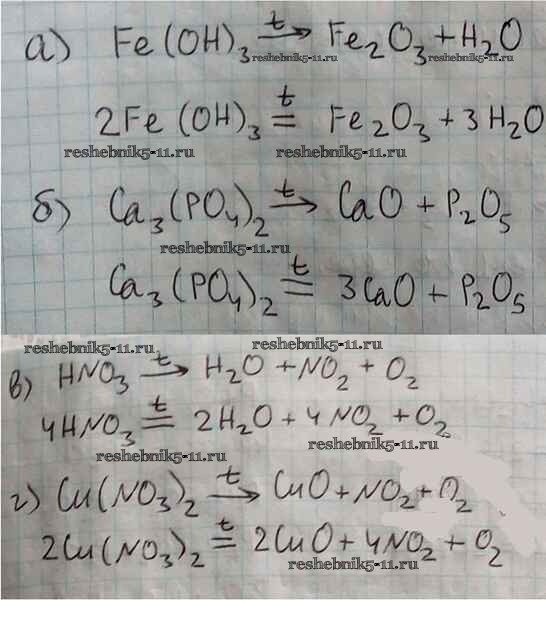 а) Fe(OH)₃ →t Fe₂O₃ + H₂O
reshebnik5-11.ru reshebnik5-11.ru
2Fe(OH)₃ =t Fe₂O₃ + 3H₂O
reshebnik5-11.ru reshebnik5-11.ru
б) Ca₃(PO₄)₂ →t CaO + P₂O₅
reshebnik5-11.ru
Ca₃(PO₄)₂ =t 3CaO + P₂O₅
reshebnik5-11.ru reshebnik5-11.ru
в) HNO₃ →t H₂O + NO₂ + O₂
4HNO₃ =t 2H₂O + 4NO₂ + O₂
reshebnik5-11.ru
reshebnik5-11.ru
г) Cu(NO₃)₂ →t CuO + NO₂ + O₂
2Cu(NO₃)₂ =t 2CuO + 4NO₂ + O₂
reshebnik5-11.ru